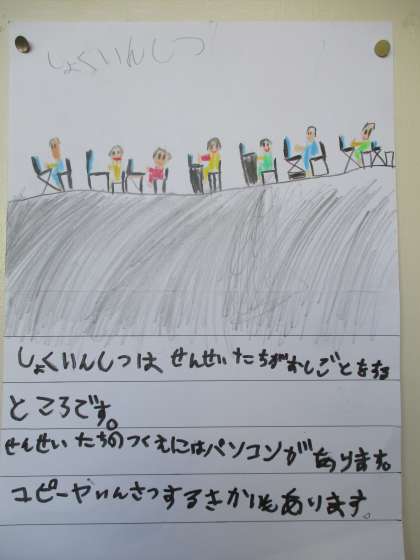 しょくいんしつ
しょくいんしつは せんせいたちがおしごとをする
ところです。
せんせいたちのつくえにはパソコンがあります。
コピーやいんさつするきかいもあります。